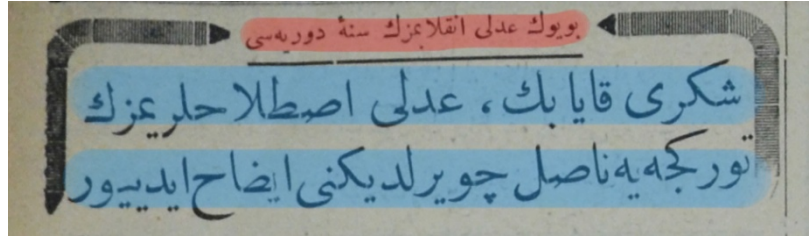 بويوك عدلى انقلابمزك سنهٔ دوريه‌سى
شكرى قايا بك ، عدلى اصطلاحلريمزك
تورکجه‌يه ناصل چويرلديكنى ايضاح ايدييور